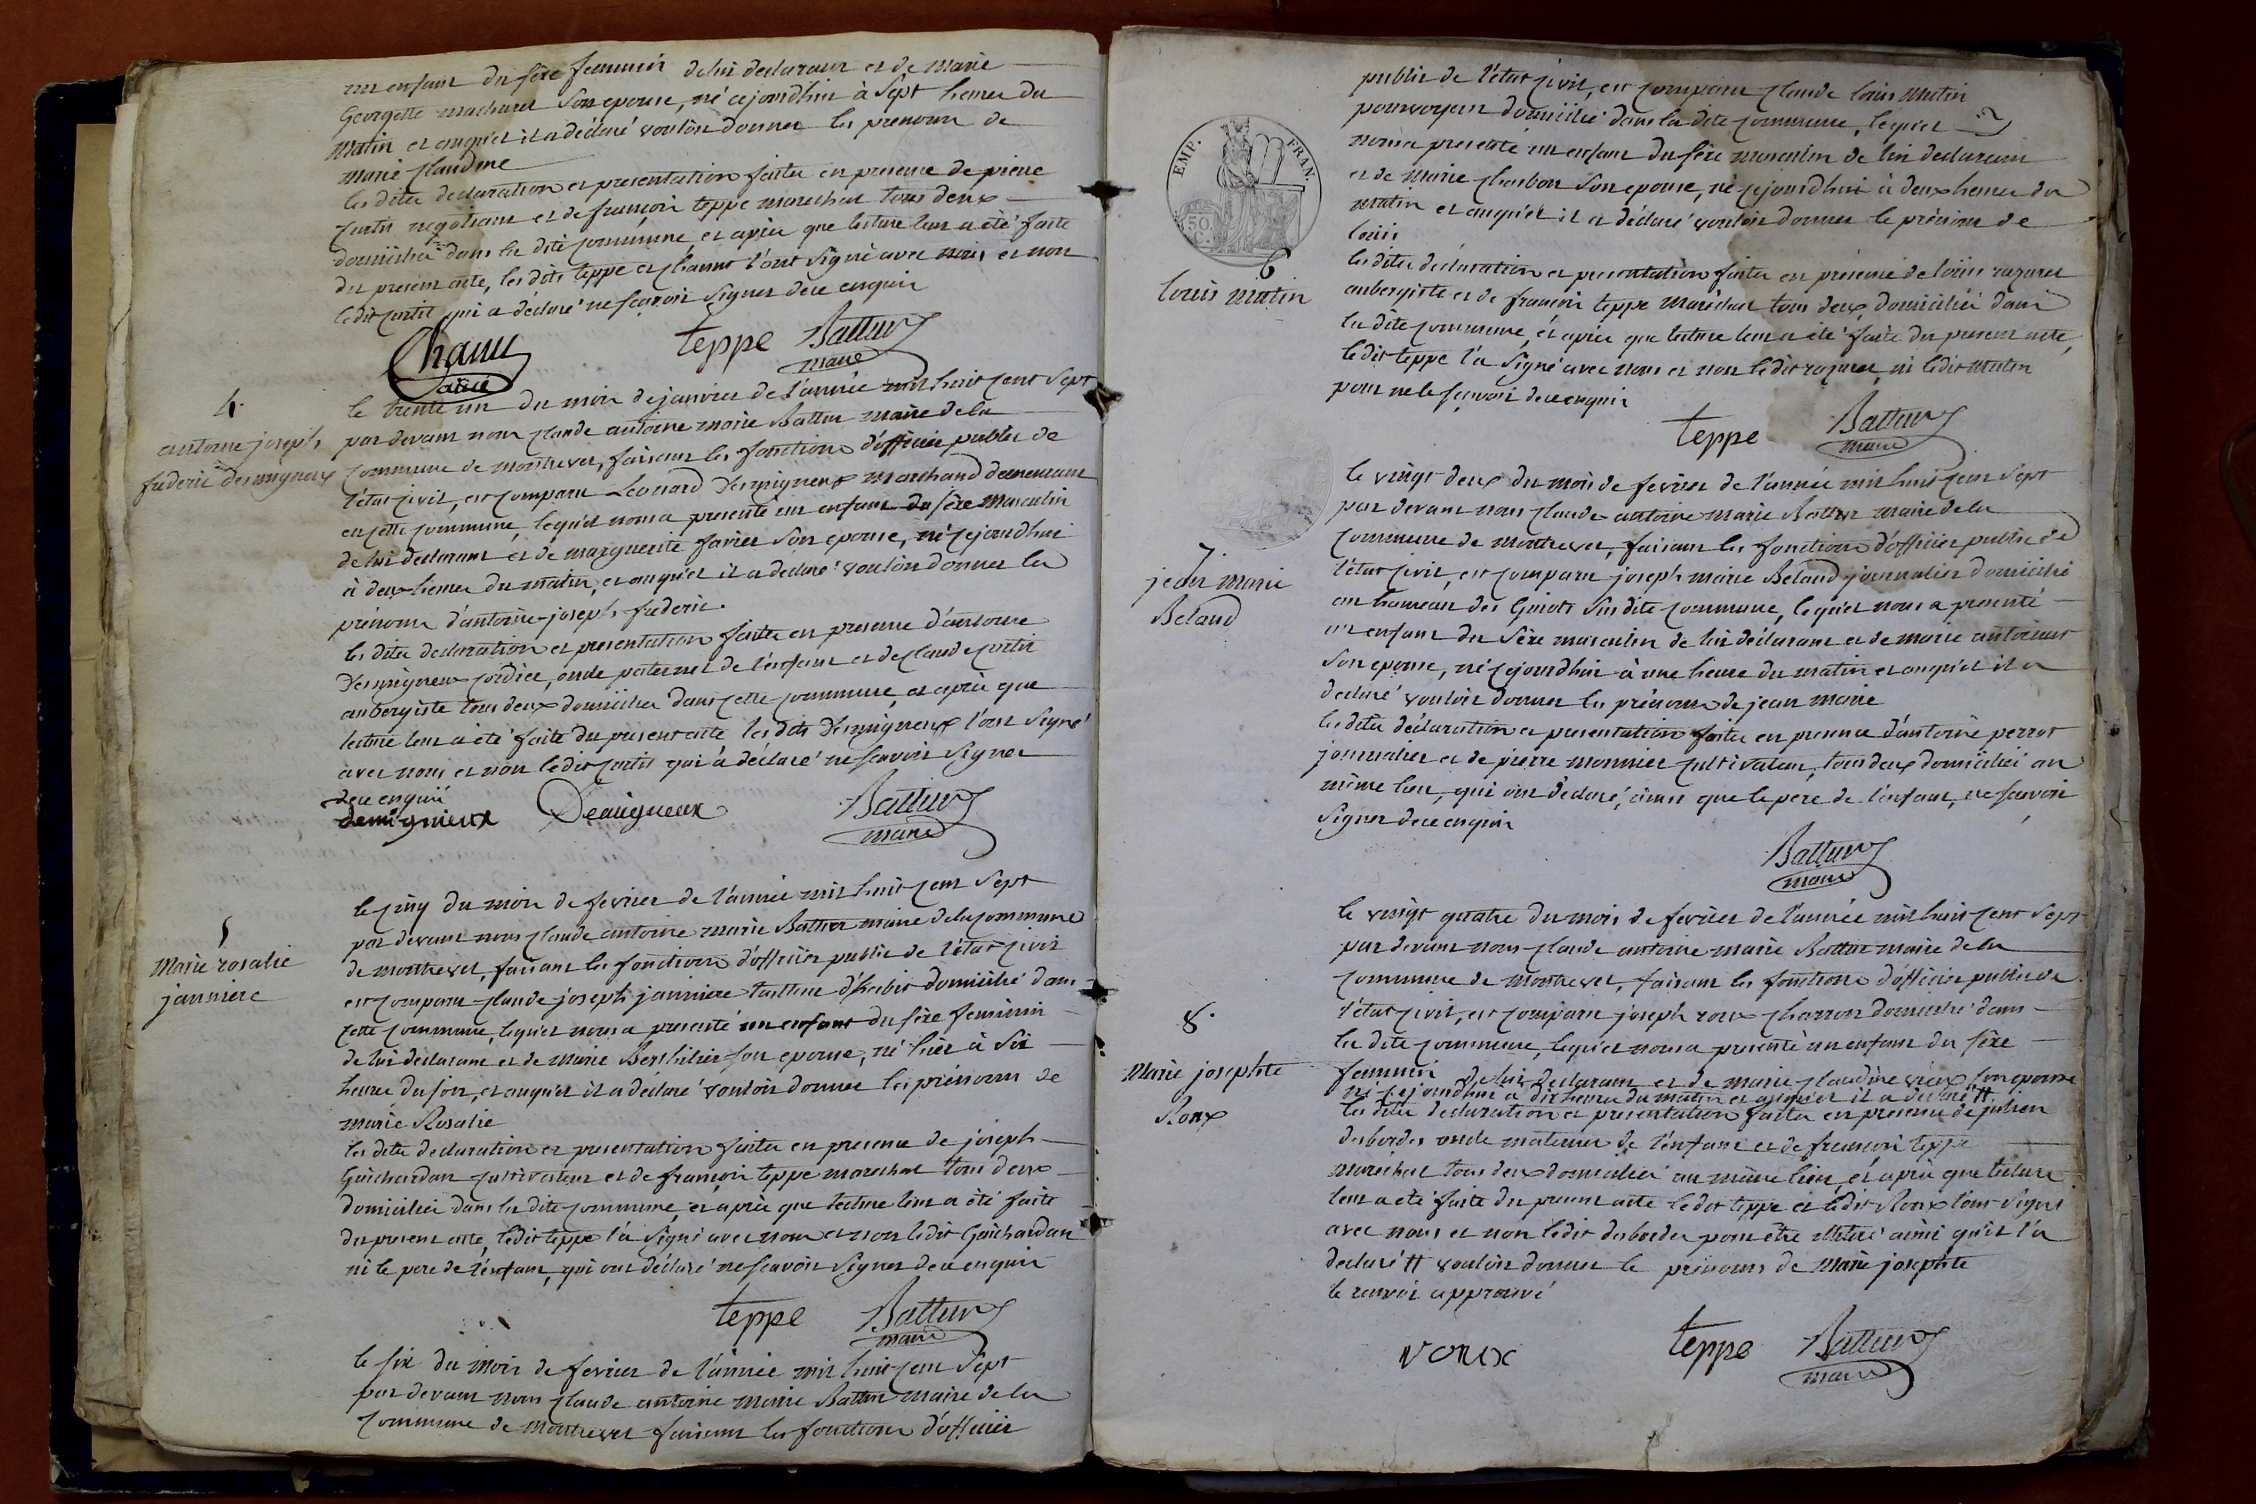 un enfant du sexe feminin de lui declarant et de marie
Georgette machuret son epouse, né cejourdhui à sept heures du
matin et auquel il a déclaré vouloir donner les prenoms de
marie Claudine
les dites declaration et presentation faites en presence de pierre
Curtit negotiant et de françois teppe marechal tous deux
domiciliés dans la dite commune, et après que lecture leur a été faite
du présent acte, les dits teppe et l'ont signé avec nous et non
le dit Curtit qui a déclaré ne sçavoir signer de ce enquis
teppe Battur
maire
4.
antoine joseph
frederic desmigneux
le trente un du mois de janvier de l'année mil huit cent sept
par devant nous Claude antoine marie Battur maire de la
commune de montrevel, faisant les fonctions d'officier public de
l'état civil, est comparu Leonard Desmigneux marchand demeurant
en cette commune, lequel nous a presenté un enfant du sexe masculin
de lui declarant et de marguerite favier son epouse, né cejourdhui
à deux heures du matin, et auquel il a déclaré vouloir donner les
prénoms d'antoine-joseph frederic.
les dites declaration et presentation faites en presence d'antoine
Desmigneux cordier, oncle paternel de l'enfant et de Claude Curtit
aubergiste tous deux domiciliés dans cette commune, et après que
lecture leur a été faite du present acte les dits Desmigneux l'ont signé
avec nous et non le dit Curtit qui a déclaré ne sçavoir signer
de ce enquis
demignieux Demigneux Battur
maire
5
Marie rosalie
janniere
le cinq du mois de fevrier de l'année mil huit cent sept
par devant nous Claude antoine marie Battur maire de la commune
de montrevel, faisant les fonctions d'officier public de l'état civil
est comparu Claude joseph janniere tailleur d'habits domicilié dans
cette commune, lequel nous a presenté un enfant du sexe feminin
de lui declarant et de Marie Berthilier son epouse, né hier à six
heures du soir, et auquel il a déclaré vouloir donner les prénoms de
marie Rosalie
les dites declaration et presentation faites en presence de joseph
Guichardan cultivateur et de françois teppe marechal tous deux
domiciliés dans la dite commune, et après que lecture leur a été faite
du present acte, le dit teppe l'a signé avec nous et non le dit Guichardan
ni le pere de l'enfant, qui ont déclaré ne sçavoir signer de ce enquis
teppe Battur
maire
le six du mois de fevrier de l'année mil huit cent sept
par devant nous Claude antoine marie Battur maire de la
commune de montrevel faisant les fonctions d'officier
public de l'état civil, est comparu Claude louis Mutin
pourvoyeur domicilié dans la dite commune, lequel
nous a presenté un enfant du sexe masculin de lui declarant
et de marie Charbon son epouse, né cejourdhui à deux heures du
matin et auquel il a déclaré vouloir donner le prénom de
louis
les dites declaration et presentation faites en présence de louis
aubergiste et de françois teppe maréchal tous deux domiciliés dans
la dite commune, et après que lecture leur a été faite du present acte,
le dit teppe l'a signé avec nous et non le dit ni le dit Mutin
pour ne le sçavoir de ce enquis
EMP. FRAN.
50
C.
6
louis mutin
teppe Battur
maire
7.
jean marie
Beland
le vingt deux du mois de fevrier de l'année mil huit cent sept
par devant nous Claude antoine marie Battur maire de la
commune de montrevel, faisant les fonctions d'officier public de
l'état civil, est comparu joseph marie Beland journalier domicilié
au hameau des Guiots sus dite commune, lequel nous a presenté
un enfant du sexe masculin de lui déclarant et de marie
son epouse, né cejourdhui à une heure du matin et auquel il a
declaré vouloir donner les prénoms de jean marie
les dites déclaration et presentation faites en presence d'antoine perret
journalier et de pierre monnier cultivateur, tous deux domiciliés au
même lieu, qui ont déclaré, ainsi que le pere de l'enfant, ne sçavoir
signer de ce enquis
Battur
maire
8.
Marie josephte
Roux
le vingt quatre du mois de fevrier de l'année mil huit cent sept
par devant nous Claude antoine marie Battur maire de la
commune de montrevel, faisant les fonctions d'officier public de
l'état civil, est comparu joseph roux charron domicilié dans
la dite commune, lequel nous a presenté un enfant du sexe
feminin de lui declarant et de marie Claudine vieux son epouse
né cejourdhui à dix heures du matin et auquel il a déclaré #
les dites declaration et presentation faites en presence de julien
desbordes oncle maternel de l'enfant et de françois teppe
marechal tous deux domiciliés au même lieu, et après que lecture
leur a été faite du present acte le dit teppe et le dit Roux l'ont signé
avec nous et non le dit desbordes pour être illitéré ainsi qu'il l'a
declaré # vouloir donner le prénoms de Marie josephte
le renvoi approuvé
roux teppe Battur
maire